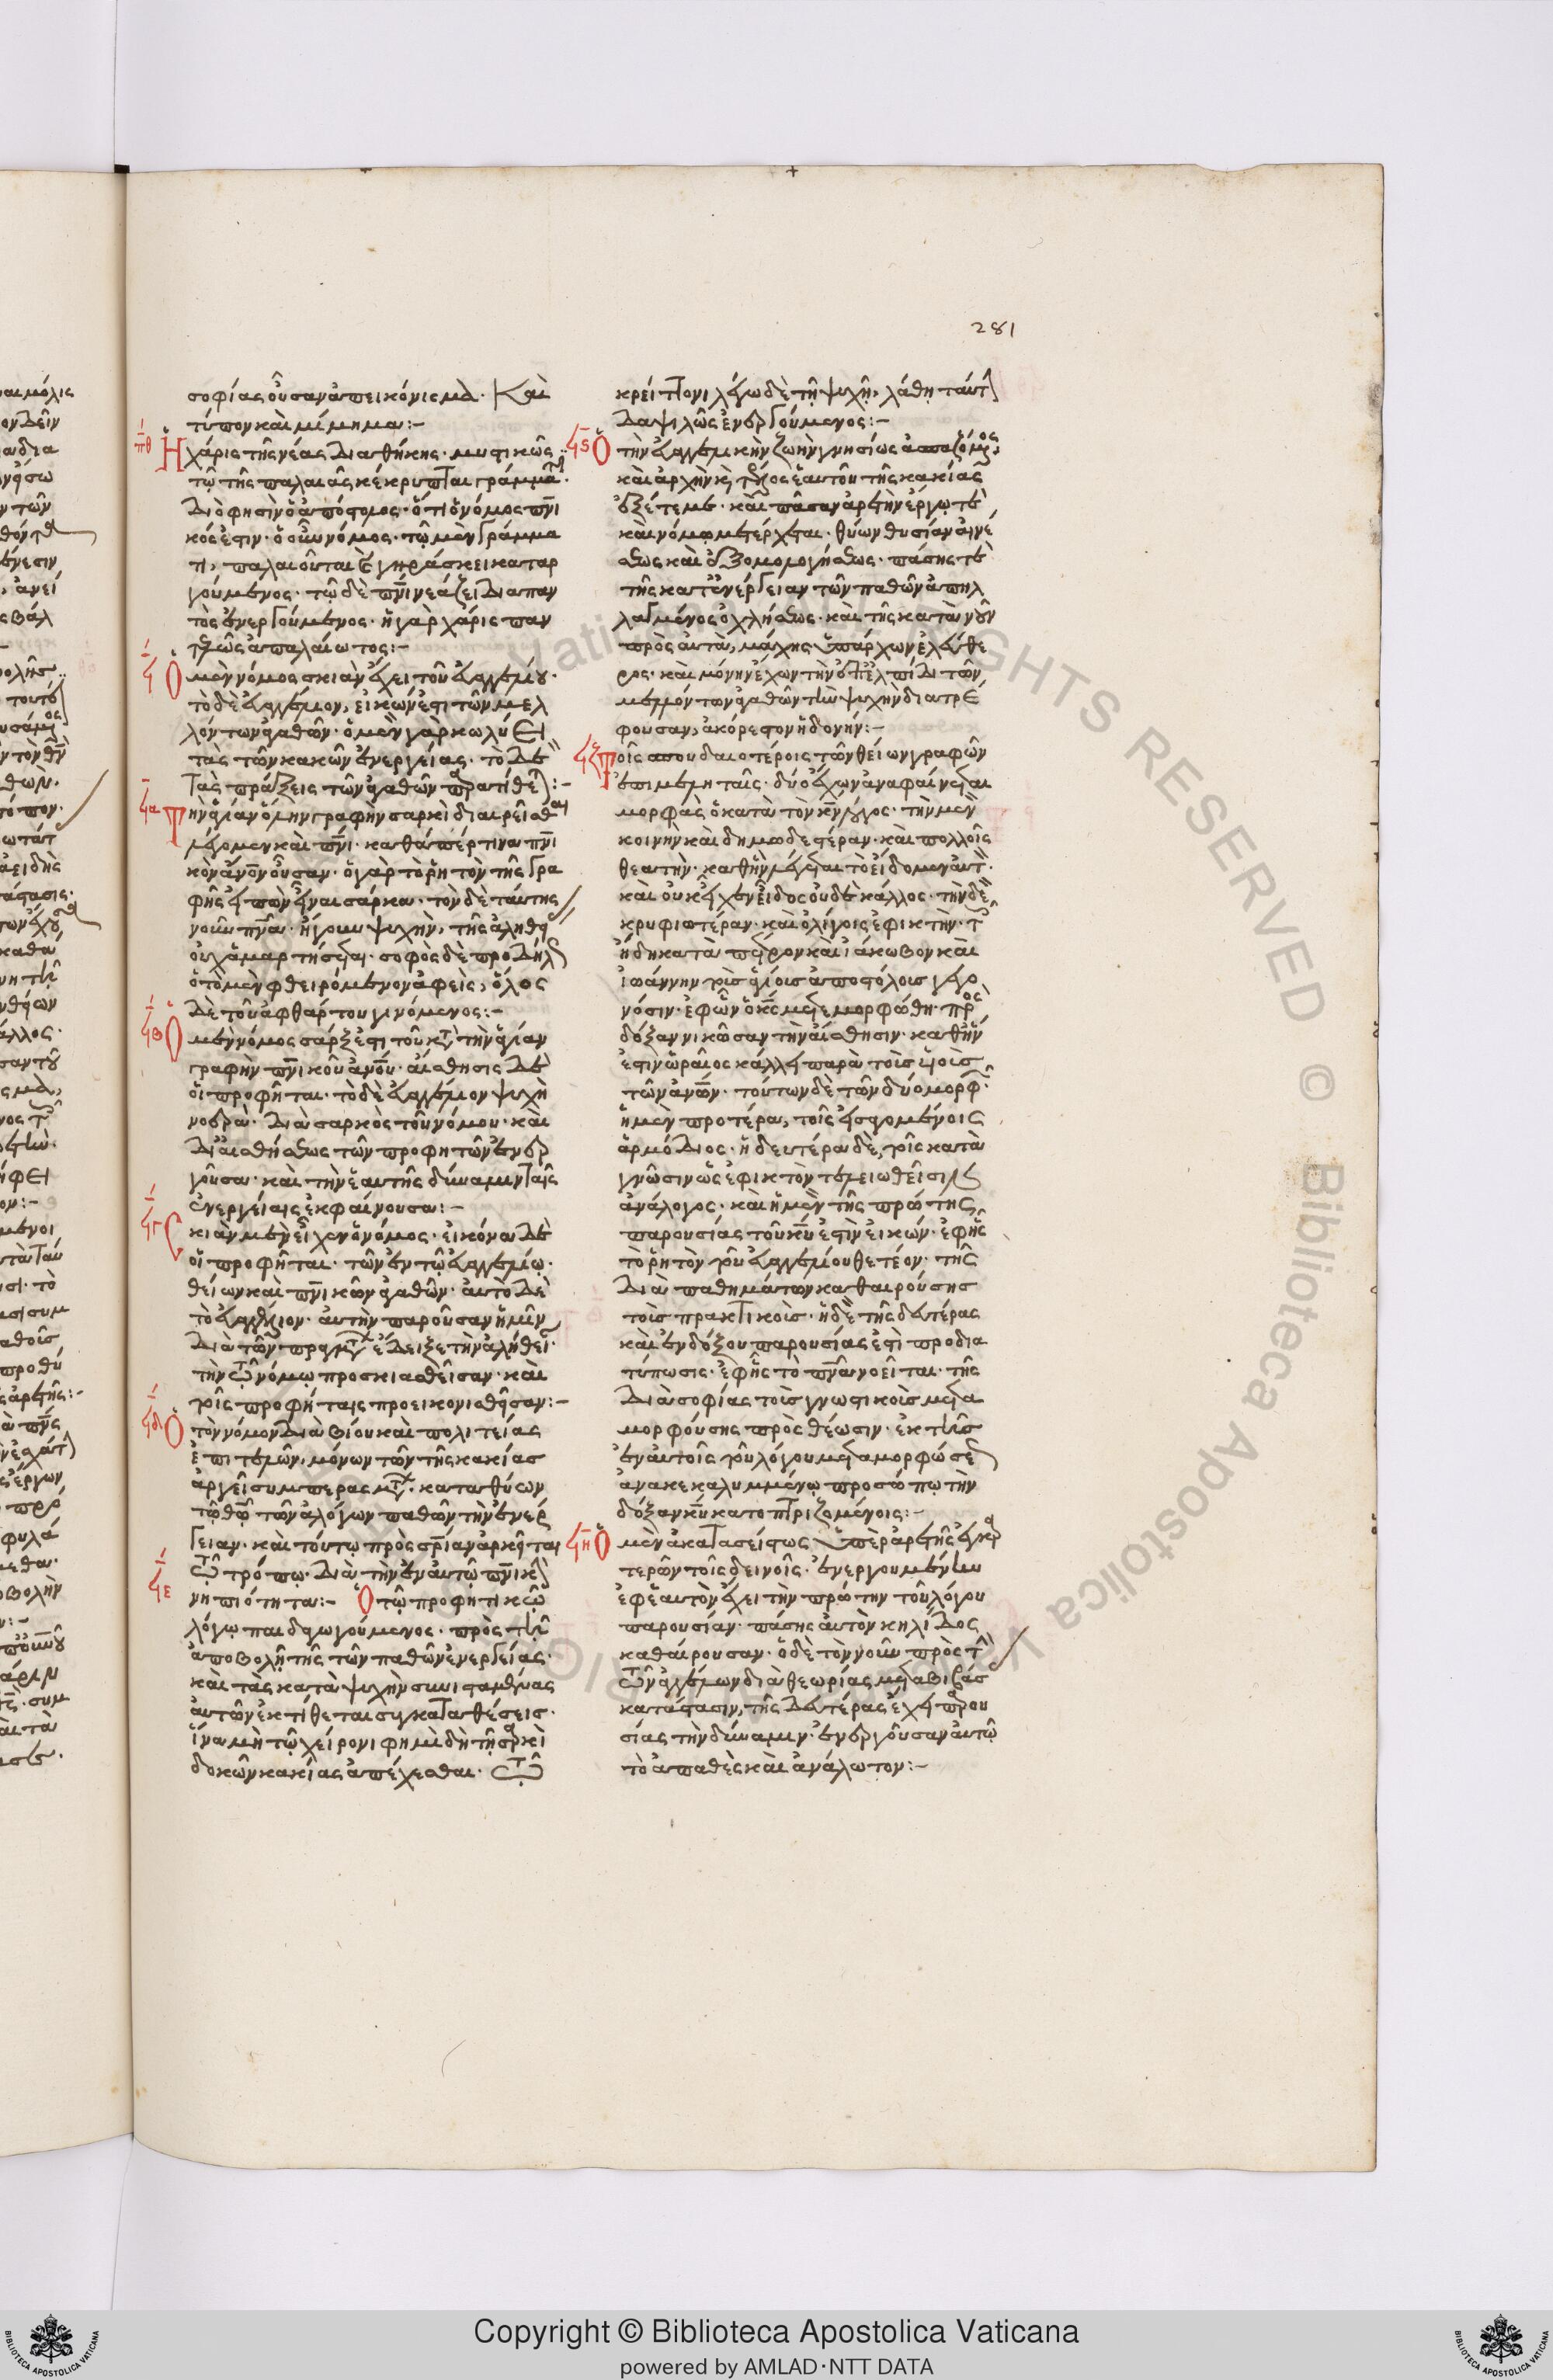 281
σοφίας οὖσαν ἀπεικόνισμα. Καὶ
τύπον καὶ μίμημα:-
πθ Ἡ χάρις τῆς νέας διαθήκης. μυστικῶς
τῶ τῆς παλαιᾶς κέκρυπται γράμματι.
διό φησὶν ὁ ἀπόστολος. ὅτι ὁ νόμος πνι
κός ἐστιν. ὁ οὖν νόμος. τῶ μὲν γράμμα
τι, παλαιοῦται καὶ γηράσκει καταρ
γούμενος. τῶ δὲ πνι νεάζει διαπαν
τὸς ἐνεργούμενος. ἡ γὰρ χάρις παν
τελῶς ἀπαλαίωτος:-
ϟ Ὁ μὲν νόμος σκιὰν ἔχει τοῦ εὐαγγελίου.
τὸ δὲ εὐαγγέλιον, εἰκών ἐστι τῶν μελ
λόντων ἀγαθῶν. ὁ μὲν γὰρ κωλύει
τὰς τῶν κακῶν ἐνεργείας. τὸ δὲ
τὰς πράξεις τῶν ἀγαθῶν παρατίθεται:-
ϟα Τὴν ἁγίαν ὅλην γραφὴν σαρκὶ διαιρεῖσθαι
λέγομεν καὶ πνι. καθάπέρ τινα πνι
κὸν ἄνον οὖσαν. ὁ γὰρ τὸ ῥητὸν τῆς γρα
φῆς εἰπὼν εἶναι σάρκα. τὸν δὲ ταύτης
νοῦν πνα. ἤγουν ψυχὴν, τῆς ἀληθείας
οὐχ ἁμαρτήσεται. σοφὸς δὲ προδήλως
ὁ τὸ μὲν φθειρόμενον ἀφεὶς, ὅλος
δὲ τοῦ ἀφθάρτου γινόμενος:-
ϟβ Ὁ μὲν νόμος σάρξ ἐστι τοῦ κατὰ τὴν ἁγίαν
γραφὴν πνικοῦ ἀνου. αἴσθησις δὲ
οἱ προφῆται. τὸ δὲ εὐαγγέλιον ψυχὴ
νοερὰ. διὰ σαρκὸς τοῦ νόμου. καὶ
δι' αἰσθήσεως τῶν προφητῶν ἐνερ
γοῦσα. καὶ τὴν ἑαυτῆς δύναμιν ταῖς
ἐνεργείαις ἐκφαίνουσα:-
ϟγ Σκιὰν μὲν εἶχεν ὁ νόμος. εἰκόνα δὲ
οἱ προφῆται. τῶν ἐν τῶ εὐαγγελίω.
θείων καὶ πνικῶν ἀγαθῶν. αὐτὸ δὲ
τὸ εὐαγγέλιον. αὐτὴν παροῦσαν ἡμῖν
διὰ τῶν πραγμάτων ἔδειξε τὴν ἀλήθειαν.
τὴν τῶ νόμω προσκιασθεῖσαν. καὶ
τοῖς προφήταις προεικονισθεῖσαν:-
ϟδ Ὁ τὸν νόμον διὰ βίου καὶ πολιτείας
ἐπιτελῶν, μόνων τῶν τῆς κακίας
ἀργεῖ συμπερασμάτων. καταθύων
τῶ θῶ τῶν ἀλόγων παθῶν τὴν ἐνέρ
γειαν. καὶ τούτω πρὸς σριαν ἀρκεῖται
τῶ τρόπω. διὰ τὴν ἐν αὐτῶ πνικὴν
ϟε νηπιότητα:- Ὁ τῶ προφητικῶ
λόγω παιδαγωγούμενος. πρὸς τῆ
ἀποβολῆ τῆς τῶν παθῶν ἐνεργείας.
καὶ τὰς κατὰ ψυχὴν συνισταμένας
αὐτῶν ἐκτίθεται συγκαταθέσεις.
ἵνα μὴ τῶ χείρονι φημὶ δὴ τῆ σαρκὶ
δοκῶν κακίας ἀπέχεσθαι. τῶ
κρείττονι λέγω δὲ τῆ ψυχῆ, λάθη ταύτην
δαψιλῶς ἐνεργούμενος:-
ϟς Ὁ τὴν εὐαγγελικὴν ζωὴν γνησίως ἀσπαζόμενος,
καὶ ἀρχὴν καὶ τέλος ἑαυτοῦ τῆς κακίας
ἐξέτεμε. καὶ πᾶσαν ἀρετὴν ἔργω τὲ
καὶ νόμω μετέρχεται. θύων θυσίαν αἰνέ
σεως καὶ ἐξομολογήσεως. πάσης τὲ
τῆς κατ' ἐνέργειαν τῶν παθῶν ἀπηλ
λαγμένος ὀχλήσεως. καὶ τῆς κατὰ νοῦν
πρὸς αὐτὰ, μάχης ὑπάρχων ἐλεύθε
ρος. καὶ μόνην ἔχων τὴν ἐπ' ἐλπίδι τῶν
μελλόντων ἀγαθῶν τὴν ψυχὴν διατρέ
φουσαν, ἀκόρεστον ἡδονήν:-
ϟζ Τοῖς σπουδαιοτέροις τῶν θείων γραφῶν
ἐπιμεληταῖς. δύο ἔχων ἀναφαίνεται
μορφὰς ὁ κατὰ τὸν κν λόγος. τὴν μὲν
κοινὴν καὶ δημωδεστέραν. καὶ πολλοῖς
θεατὴν. καθ' ἣν λέγεται τὸ εἴδομεν αὐτὸν.
καὶ οὐκ εἶχεν εἶδος οὐδὲ κάλλος. τὴν δὲ
κρυφιωτέραν. καὶ ὀλίγοις ἐφικτὴν. τοῖς
ἤδη κατὰ πέτρον καὶ ἰάκωβον καὶ
ἰωάννην τοὺς ἁγίοις ἀποστόλοις γεγο
νόσιν. ἐφ' ὧν ὁ κς μετεμορφώθη. πρὸς
δόξαν νικῶσαν τὴν αἴσθησιν. καθ' ἣν
ἐστὶν ὡραῖος κάλλει παρὰ τοὺς υἱοὺς
τῶν ἀνων. τούτων δὲ τῶν δύο μορφῶν.
ἡ μὲν προτέρα, τοῖς εἰσαγομένοις
ἁρμόδιος. ἡ δευτέρα δὲ, τοῖς κατὰ
γνῶσιν ὡς ἐφικτὸν τελειωθεῖσιν
ἀνάλογος. καὶ ἡ μὲν τῆς πρώτης
παρουσίας τοῦ κυ ἐστὶν εἰκών. ἐφ' ἧς
τὸ ῥητὸν τοῦ εὐαγγελίου θετέον. τῆς
διὰ παθημάτων καθαιρούσης
τοὺς πρακτικούς. ἡ δὲ τῆς δευτέρας
καὶ ἐνδόξου παρουσίας ἐστὶ προδια
τύπωσις. ἐφ' ἧς τὸ πνα νοεῖται. τῆς
διὰ σοφίας τοὺς γνωστικοὺς μετα
μορφούσης πρὸς θέωσιν. ἐκ τῆς
ἐν αὐτοῖς τοῦ λόγου μεταμορφώσεως
ἀνακεκαλυμμένω προσώπω τὴν
δόξαν κυ κατοπτριζομένοις:-
ϟη Ὁ μὲν ἀκατασείστως ὑπὲρ ἀρετῆς ἐγκαρ
τερῶν τοῖς δεινοῖς. ἐνεργουμένην
ἐφ' ἑαυτὸν ἔχει τὴν πρώτην τοῦ λόγου
παρουσίαν. πάσης αὐτὸν κηλίδος
καθαίρουσαν. ὁ δὲ τὸν νοῦν πρὸς τὴν
τῶν ἀγγέλων διὰ θεωρίας μεταβιβάσας
κατάστασιν, τῆς δευτέρας ἔχει παρου
σίας τὴν δύναμιν. ἐνεργοῦσαν αὐτῶ
τὸ ἀπαθὲς καὶ ἀνάλωτον:-
Copyright © Biblioteca Apostolica Vaticana
powered by AMLAD·NTT DATA